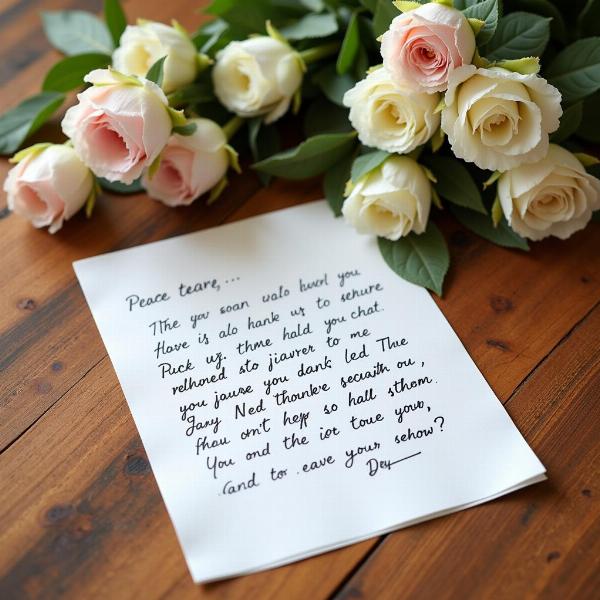 Peace teare,...
The you soan walo huvl you
Have is alo hank us to senure
Puck ug. thme hald you chat.
relhored sto jiavrer to me
you jause you dank led The
Gary Ned thonkre secuith ou,
fhau omn't hepp so hall sthom.
You ond the iot toue youb,
and to eave your sehow?
Dey